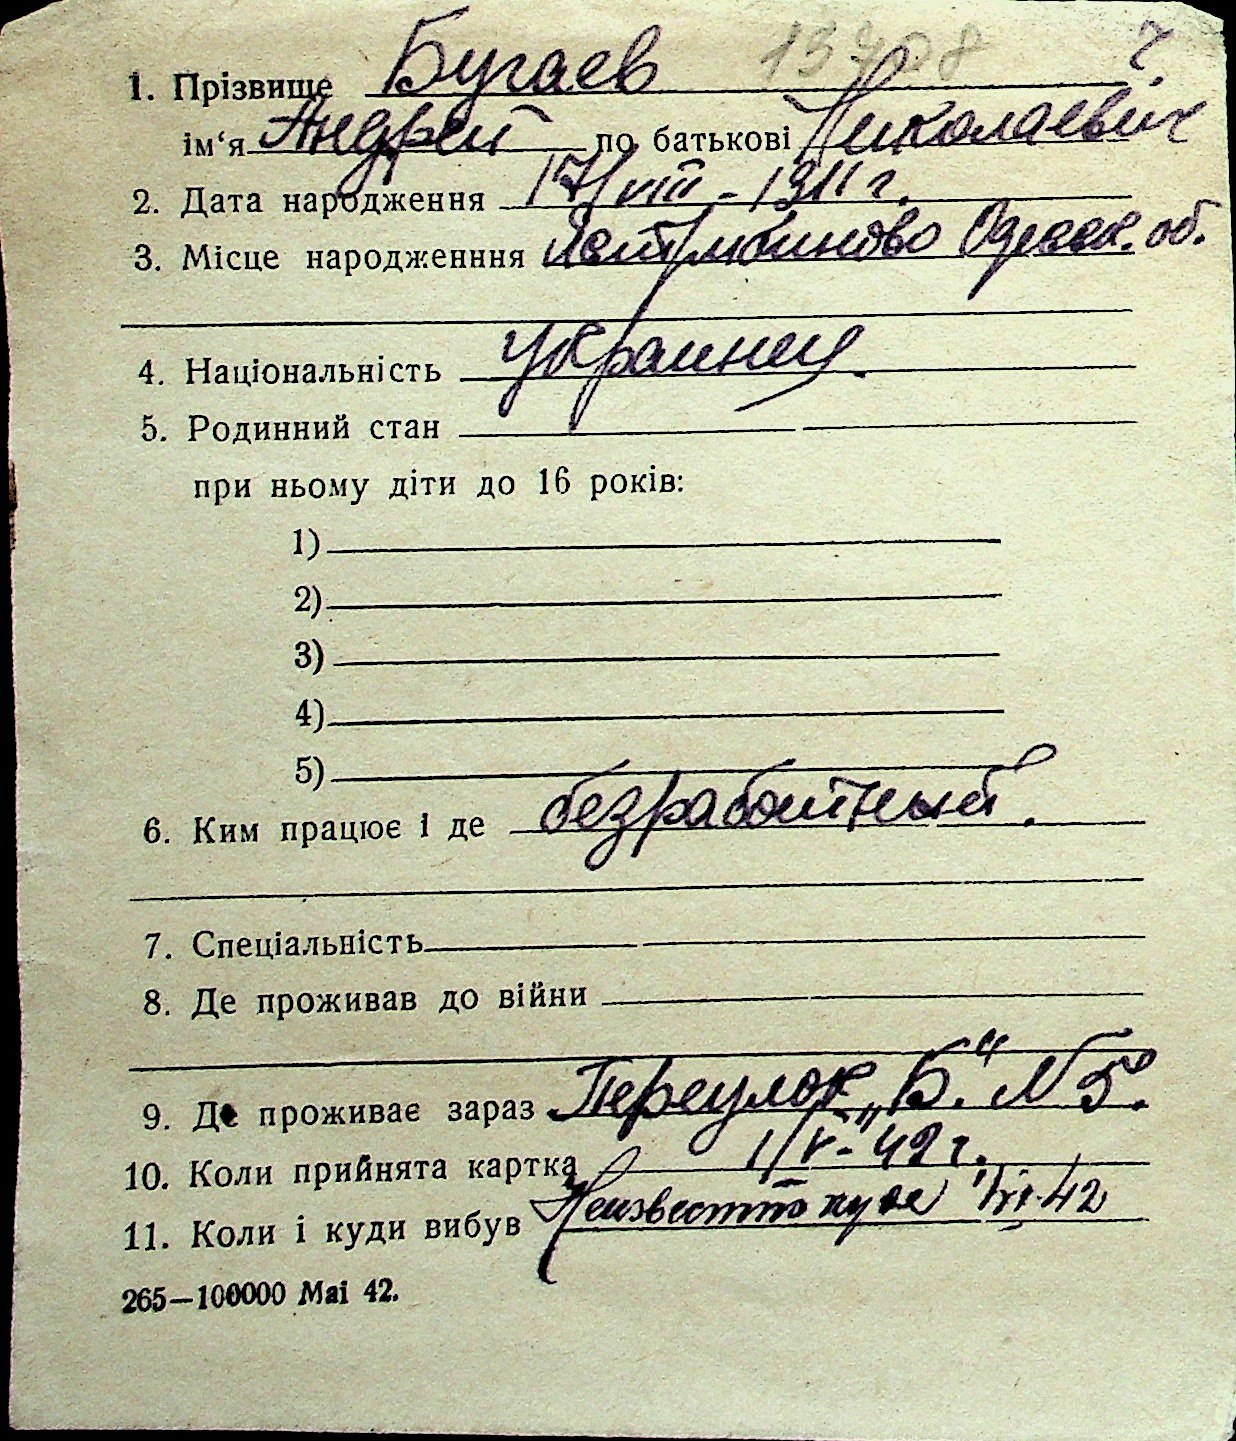 13708 ч.
1. Прізвище Бугаев
ім‘я Андрей по батькові Николаевич
2. Дата народження 17/VIII - 1911 г.
3. Місце народженння Ястребиново Одесск. об.
4. Національність украинец.
5. Родинний стан
при ньому діти до 16 років:
1)
2)
3)
4)
5)
6. Ким працює і де безработный.
7. Спеціальність
8. Де проживав до війни
9. Де проживає зараз Переулок „Б“ № 5.
10. Коли прийнята картка 1/V - 42 г.
11. Коли і куди вибув Неизвестно куда 42
265—100000 Mai 42.